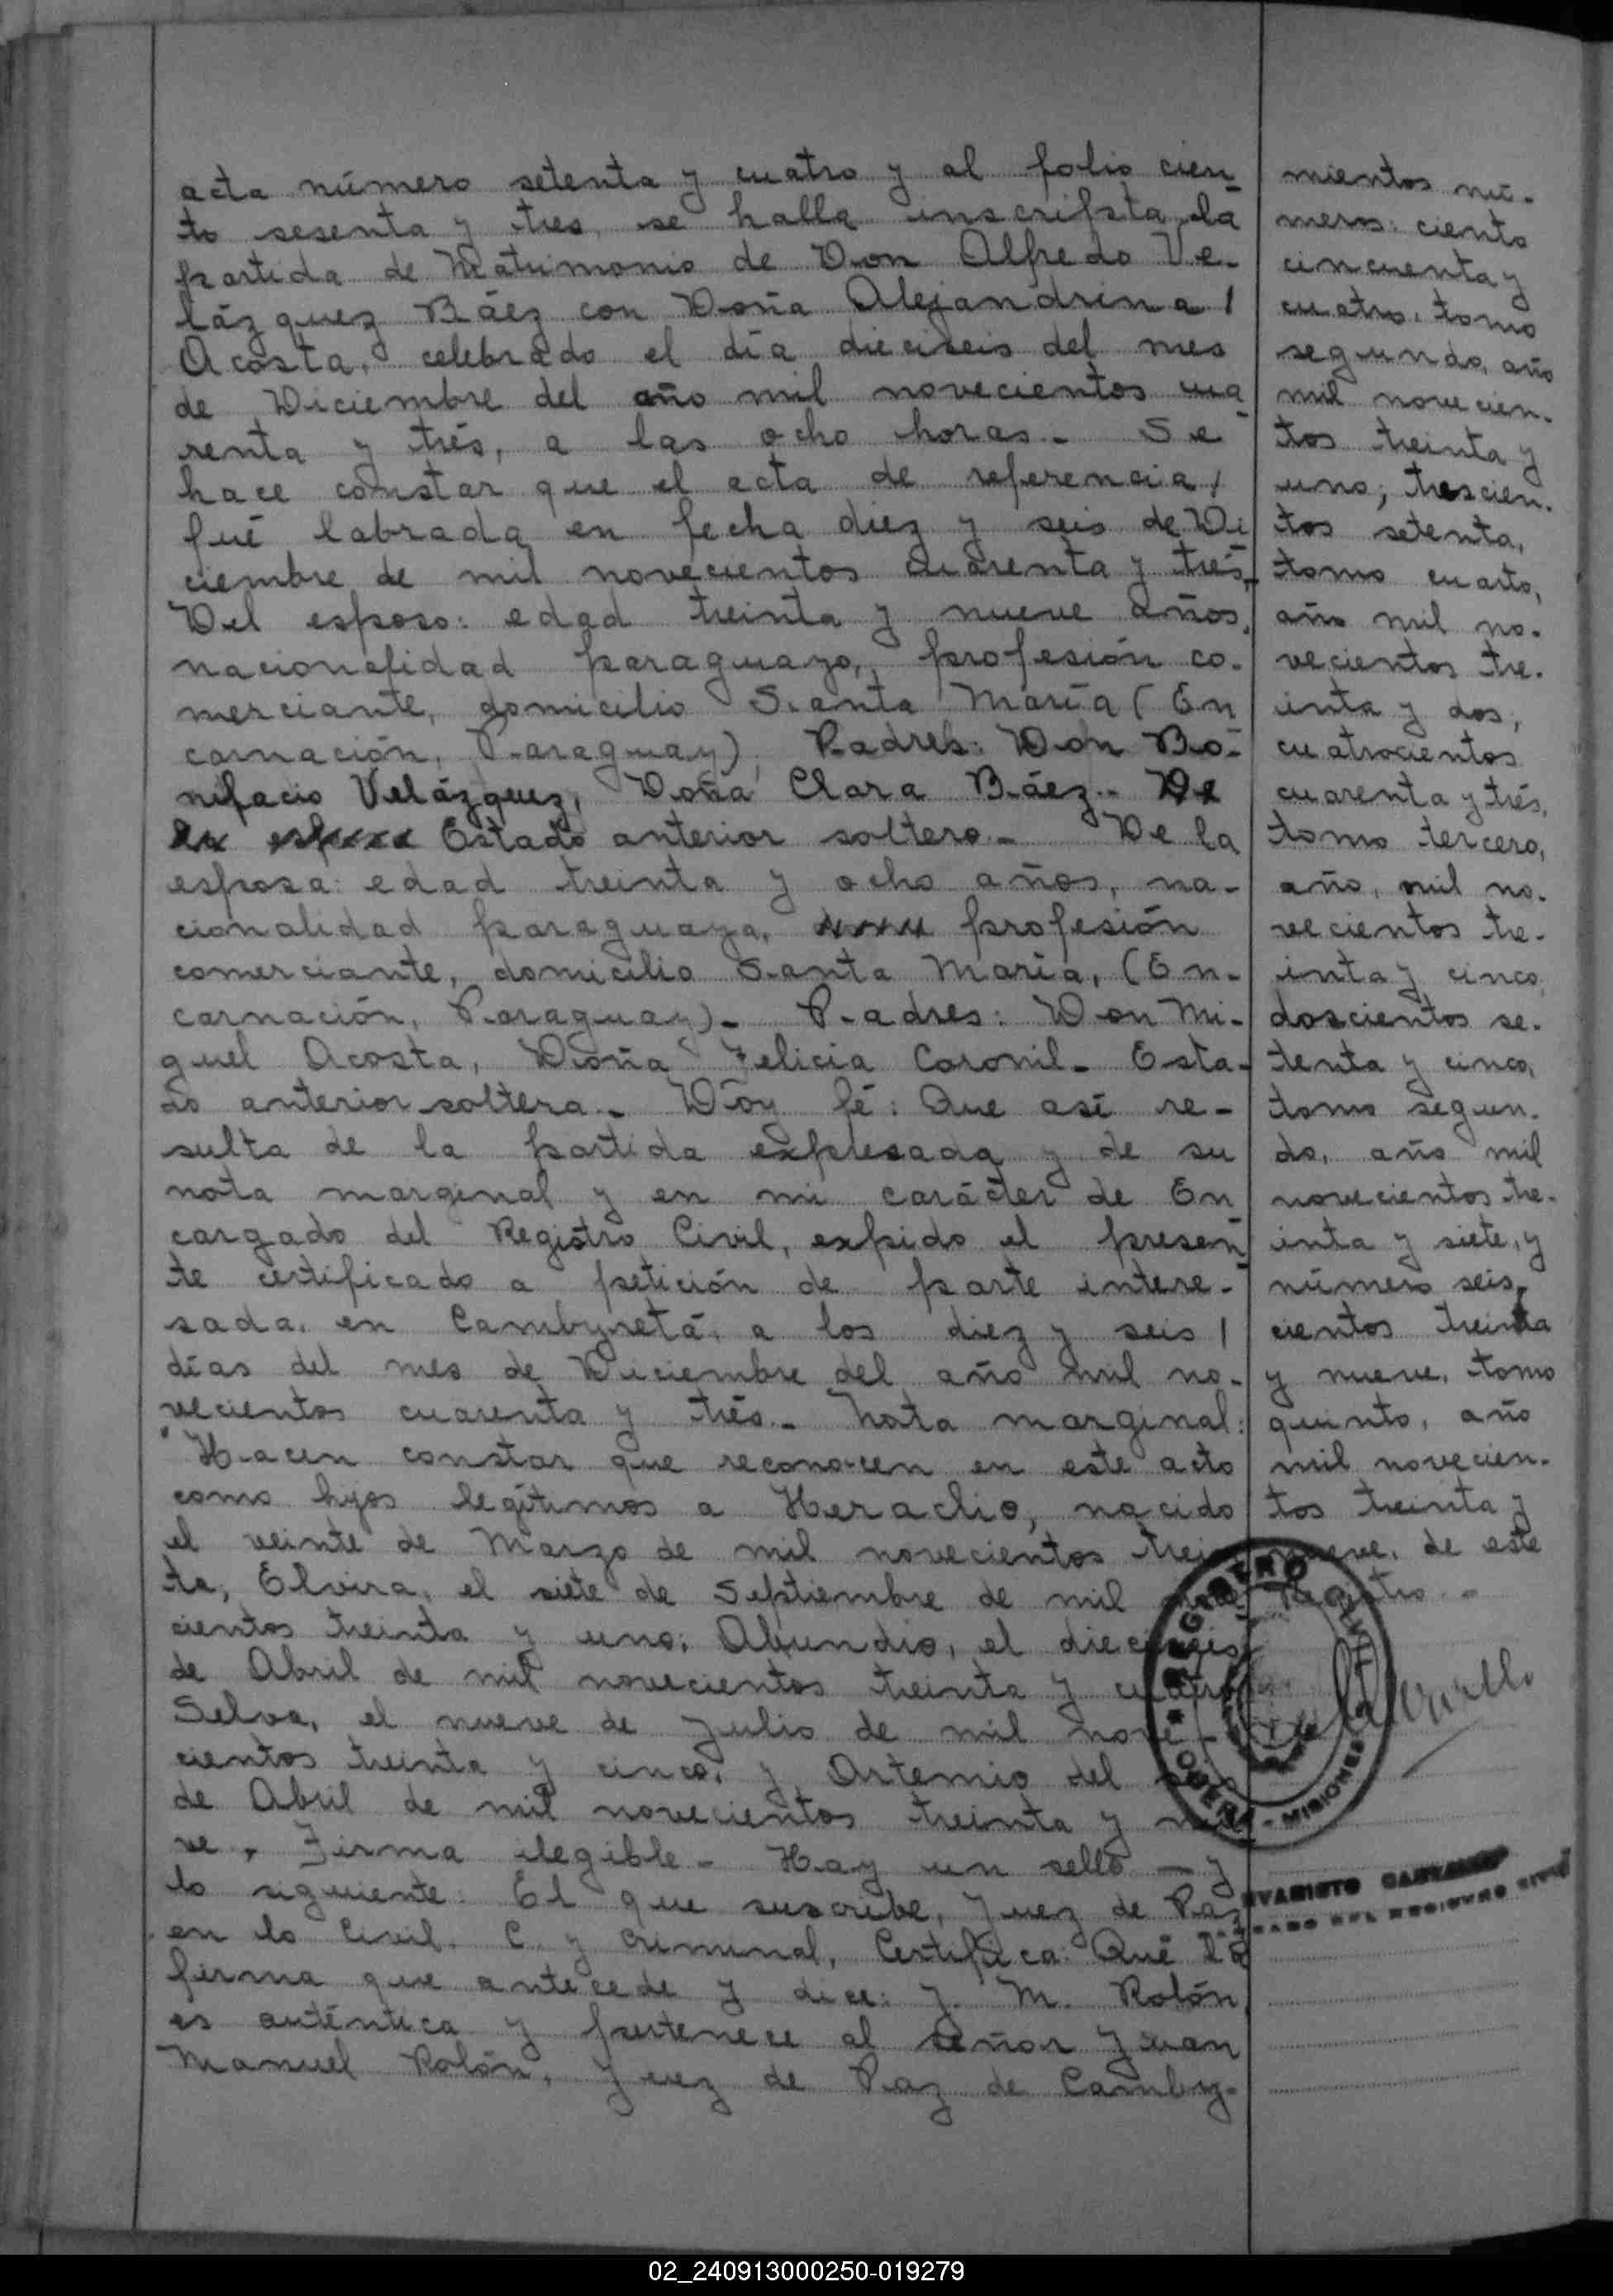 acta número setenta y cuatro y al folio cien-
to sesenta y tres, se halla inscripta la
partida de Matrimonio de Don Alfredo Ve-
lázquez Báez con Doña Alejandrina /
Acosta, celebrado el día dieciseis del mes
de Diciembre del año mil novecientos cua-
renta y trés, a las ocho horas.- Se
hace constar que el acta de referencia /
fué labrada en fecha diez y seis de Di-
ciembre de mil novecientos cuarenta y trés.-
Del esposo: edad treinta y nueve años,
nacionalidad paraguayo, profesión co-
merciante, domicilio Santa María (En
carnación, Paraguay), Padres: Don Bo-
nifacio Velázquez, Doña Clara Báez.- De
la esposa Estado anterior soltero.- De la
esposa: edad treinta y ocho años, na-
cionalidad paraguaya, profesión
comerciante, domicilio Santa María, (En-
carnación, Paraguay).- Padres: Don Mi-
guel Acosta, Doña Felicia Coronil.- Esta-
do anterior soltera.- Dóy fé: Que así re-
sulta de la partida expresada y de su
nota marginal y en mi carácter de En
cargado del Registro Civil, expido el presen-
te certificado a petición de parte intere-
sada, en Cambyretá, a los diez y seis /
días del mes de Diciembre del año mil no-
vecientos cuarenta y trés.- Nota marginal:
"Hacen constar que reconocen en este acto
como hijos legítimos a Heraclio, nacido
el veinte de Marzo de mil novecientos trein-
ta; Elvira, el siete de Septiembre de mil nove-
cientos treinta y uno; Abundio, el dieciseis
de Abril de mil novecientos treinta y cuatro
Selva, el nueve de Julio de mil nove-
cientos treinta y cinco, y Artemio del seis
de Abril de mil novecientos treinta y nue-
ve. Firma ilegible.- Hay un sello — y
lo siguiente: El que suscribe, Juez de Paz
en lo Civil, C. y Criminal, Certifica: Qué la
firma que antecede y dice: J. M. Rolón,
es auténtica y pertenece al señor Juan
Manuel Rolón, Juez de Paz de Camby-
mientos nú-
meros: ciento
cincuenta y
cuatro, tomo
segundo, año
mil novecien-
tos treinta y
uno; trescien-
tos setenta,
tomo cuarto,
año mil no-
vecientos tre-
inta y dos;
cuatrocientos
cuarenta y trés,
tomo tercero,
año, mil no-
vecientos tre-
inta y cinco,
doscientos se-
tenta y cinco,
tomo segun-
do, año mil
novecientos tre-
inta y siete, y
número seis-
cientos treinta
y nueve, tomo
quinto, año
mil novecien-
tos treinta y
nueve, de este
Registro.-
REGISTRO CIVIL
OBERA - MISIONES
EVARISTO
DEL REGISTRO CIVIL
02_240913000250-019279